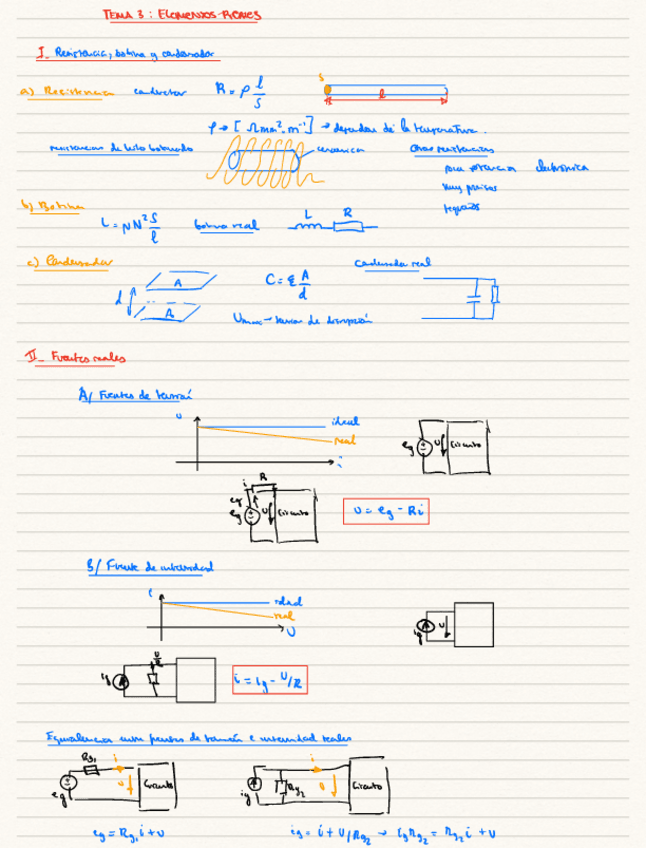 TEMA 3: ELEMENTOS REALES
I_ Resistencia, bobina y condensador
a) Resistencia conductor R = ρ l/S
S
l
ρ → [Ω mm² · m⁻¹] → dependen de la temperatura.
resistencias de hilo bobinado
ceramica
Otras resistencias
para potencia electrónica
Muy precisas
b) Bobina
L = μN² S/l bobina real L R
c) Condensador
A
A
d
C = ε A/d
Condensador real
Umax → tension de disrupción
II_ Fuentes reales
A/ Fuentes de tensión
U
ideal
real
i
eg U Circuito
i R
eg U Circuito
U = eg - Ri
B/ Fuente de intensidad
i
ideal
real
U
ig U
ig U/R
i = ig - U/R
Equivalencia entre fuentes de tensión e intensidad reales
Rg1 i
eg U Circuito
i
ig Rg2 U Circuito
eg = Rg1 i + U
ig = i + U/Rg2 → ig Rg2 = Rg2 i + U